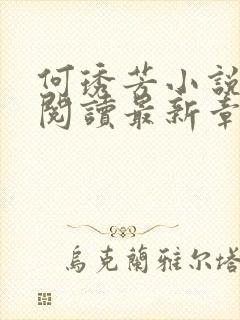 何琇芳小說
閱讀最新章
烏克蘭雅尔塔